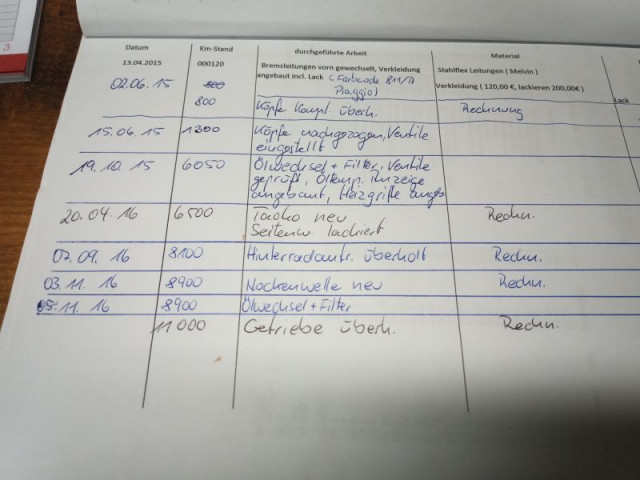 3
Datum Km-Stand durchgeführte Arbeit Material
13.04.2015 000120 Bremsleitungen vorn gewechselt, Verkleidung Stahlflex Leitungen ( Melvin )
angebaut incl. Lack ( Farbcode 811/A Verkleidung ( 120,00 €, lackieren 200,00€ ) Lack
02.06.15 800 Piaggio)
800 Köpfe kompl. überh. Rechnung
15.06.15 1300 Köpfe nachgezogen, Ventile
eingestellt
19.10.15 6050 Ölwechsel + Filter, Ventile
geprüft, Öltemp. Anzeige
angebaut, Heizgriffe angeb
20.04.16 6500 Tacho neu Rechn.
Seitenv. lackiert
07.09.16 8100 Hinterradantr. überholt Rechn.
03.11.16 8900 Nockenwelle neu Rechn.
05.11.16 8900 Ölwechsel + Filter
11 000 Getriebe überh. Rechn.